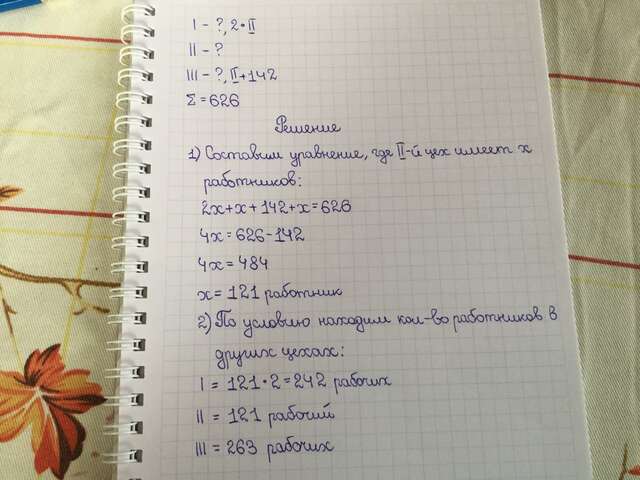 I - ?, 2·II
II - ?
III - ?, II+142
Σ = 626
Решение
1) Составим уравнение, где II-й цех имеет х
работников:
2х+х+142+х=626
4х=626-142
4х=484
х=121 работник
2) По условию находим кол-во работников в
других цехах:
I = 121·2=242 рабочих
II = 121 рабочий
III = 263 рабочих